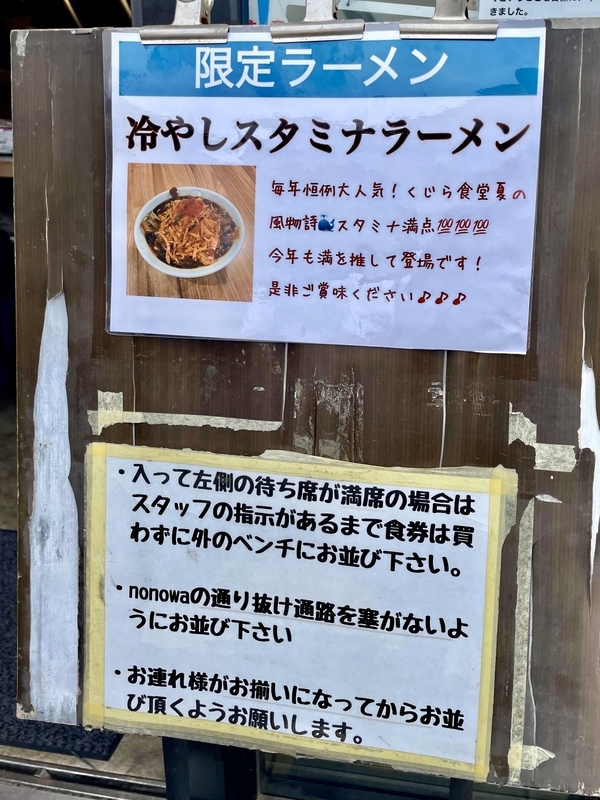 きました。
限定ラーメン
冷やしスタミナラーメン
毎年恒例大人気！くじら食堂夏の
風物詩🐳スタミナ満点💯💯💯
今年も満を推して登場です！
是非ご賞味ください♪♪♪
・入って左側の待ち席が満席の場合は
スタッフの指示があるまで食券は買
わずに外のベンチにお並び下さい。
・nonowaの通り抜け通路を塞がないよ
うにお並び下さい
・お連れ様がお揃いになってからお並
び頂くようお願いします。